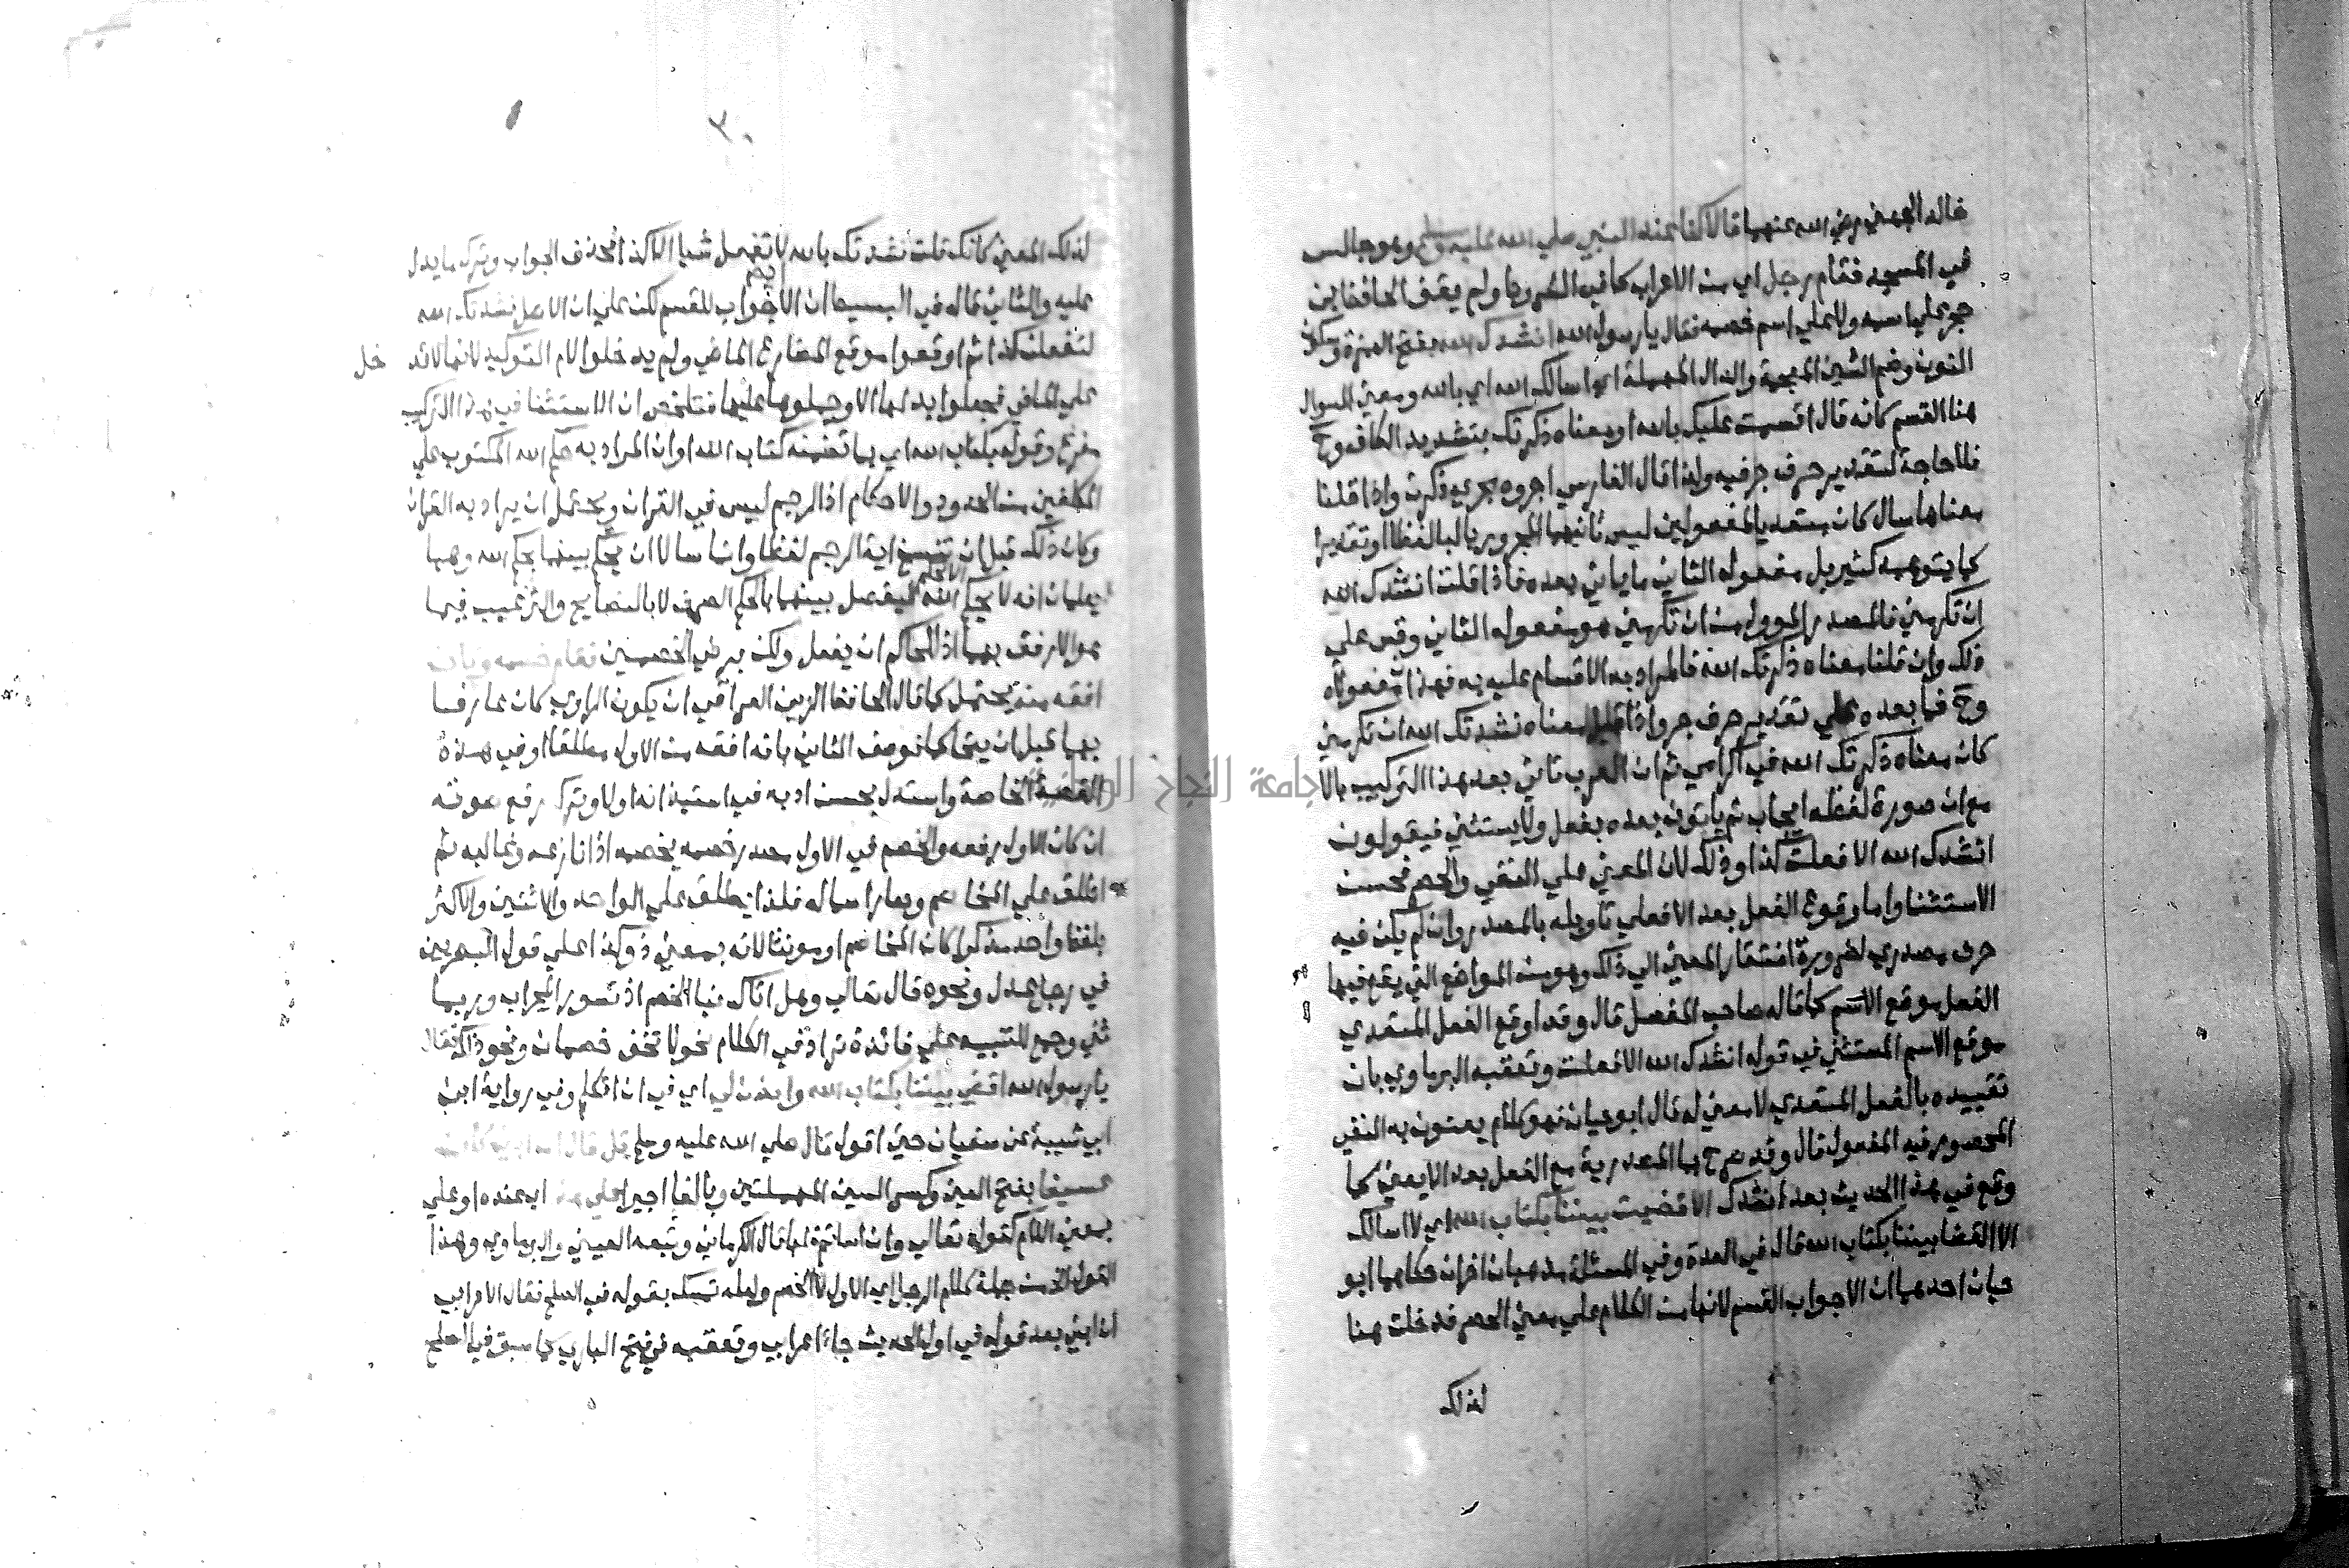 خالد الجهني رضي الله عنهما قالا كنا عند النبي صلي الله عليه وسلم وهو جالس
في المسجد فقام رجل اي من الاعراب كما في الشروط ولم يقف الحافظ ابن
حجر علي اسمه ولا علي اسم خصمه فقال يا رسول الله انشدك الله بفتح الهمزة وسكون
النون وضم الشين المعجمة والدال المهملة اي اسالك الله اي بالله ومعني السوال
هنا القسم كانه قال اقسمت عليك بالله او معناه ذكرتك بتشديد الكاف وح
فلا حاجة لتقدير حرف جر فيه ولذا قال الفارسي اجروه مجري ذكرت واذا قلنا
معناها سال كان متعديا لمفعولين ليس ثانيهما المجرور بالبا لفظا او تقديرا
كما يتوهمه كثير بل مفعوله الثاني ما ياتي بعده فاذا قلت انشدك الله
ان تكرمني فالمصدر الموول من ان تكرمني هو مفعوله الثاني وقس علي
ذلك وان قلنا معناه ذكرتك الله فالمراد به الاقسام عليه به فهذا مفعولاه
وح فما بعده علي تقدير حرف جر واذا قيل معناه نشدتك الله ان تكرمني
كان معناه ذكرتك الله في اكرامي ثم ان العرب تاتي بعد هذا التركيب بالا
مع ان صورة لفظه ايجاب ثم ياتون بعده بفعل ولا يستثني فيقولون
انشدك الله الا فعلت كذا وذلك لان المعني علي النفي والحصر فحسن
الاستثنا واما وقوع الفعل بعد الا فعلي تاويله بالمصدر وان لم يكن فيه
حرف مصدري لضرورة افتقار المعني الي ذلك وهو من المواضع التي يقع فيها
الفعل موقع الاسم كما قاله صاحب المفصل قال وقد اوقع الفعل المتعدي
موقع الاسم المستثني في قوله انشدك الله الا فعلت وتعقبه البرماوي بان
تقييده بالفعل المتعدي لا معني له قال ابو حيان فهو كلام يعنون به النفي
المحصور فيه المفعول قال وقد صرح بما المصدرية مع الفعل بعد الا يعني كما
وقع في هذا الحديث بعد انشدك الا قضيت بيننا بكتاب الله اي لا اسالك
الا القضا بيننا بكتاب الله قال في العدة وفي المسئلة مذهبان اخران حكاهما ابو
حيان احدهما ان الا جواب القسم لانها من الكلام علي معني الحصر فدخلت هنا
لذلك
٣٠
لذلك المعني كانك قلت نشدتك بالله لا تفعل شيا الا كذا فحذف الجواب وترك ما يدل
عليه والثاني قاله في البسيط ان الا ايضا جواب للقسم لكن علي ان الاصل نشدتك الله
لتفعلن كذا ثم اوقعوا موقع المضارع الماضي ولم يدخلوا لام التوكيد لانها لا تد خل
علي الماضي فجعلوا بدلها الا وحملوها عليها فتلخص ان الاستثنا في هذا التركيب
مفرغ وقوله بكتاب الله اي بما تضمنه كتاب الله او ان المراد به حكم الله المكتوب علي
المكلفين من الحدود والاحكام اذ الرجم ليس في القران ويحتمل ان يراد به القران
وكان ذلك قبل ان تنسخ اية الرجم لفظا وانما سالا ان يحكم بينهما بحكم الله وهما
يعلمان انه لا يحكم الا بحكم الله ليفصل بينهما بالحكم الصرف لا بالنصايح والترغيب فيما
هو الارفق بهما اذ للحاكم ان يفعل ولكن برضي الخصمين فقام خصمه وكان
افقه منه يحتمل كما قال الحافظ الزين العراقي ان يكون الراوي كان عارفا
بهما قبل ان يتحاكما فوصف الثاني بانه افقه من الاول مطلقا او في هذه
القصة الخاصة واستدل بحسن ادبه في استيذانه اولا وترك رفع صوته
ان كان الاول رفعه والخصم في الاول مصدر خصمه يخصمه اذا نازعه وغالبه ثم
اطلق علي المخاصم وصار اسما له فلذا يطلق علي الواحد والاثنين والاكثر
بلفظ واحد مذكرا كان المخاصم او مونثا لانه بمعني ذو كذا علي قول البصريين
في رجل عدل ونحوه قال تعالي وهل اتاك نبا الخصم اذ تسوروا المحراب وربما
ثني وجمع للتنبيه علي فائدة تراد في الكلام نحو لا تخف خصمان ونحو ذلك فقال
يا رسول الله اقض بيننا بكتاب الله وايذن لي اي في ان اتكلم وفي رواية ابن
ابي شيبة عن سفيان حتي اقول قال صلي الله عليه وسلم قل قال ان ابني كان
عسيفا بفتح العين وكسر السين المهملتين وبالفا اجيرا علي هذا اي عنده او علي
بمعني اللام كقوله تعالي وان اساتم فلها قال الكرماني وتبعه العيني والبرماوي وهذا
القول من جملة كلام الرجل اي الاول لا الخصم ولعله تمسك بقوله في الصلح فقال الاعرابي
ان ابني بعد قوله في اول الحديث جاء اعرابي وتعقبه في فتح الباري كما سبق في الصلح
جامعة النجاح